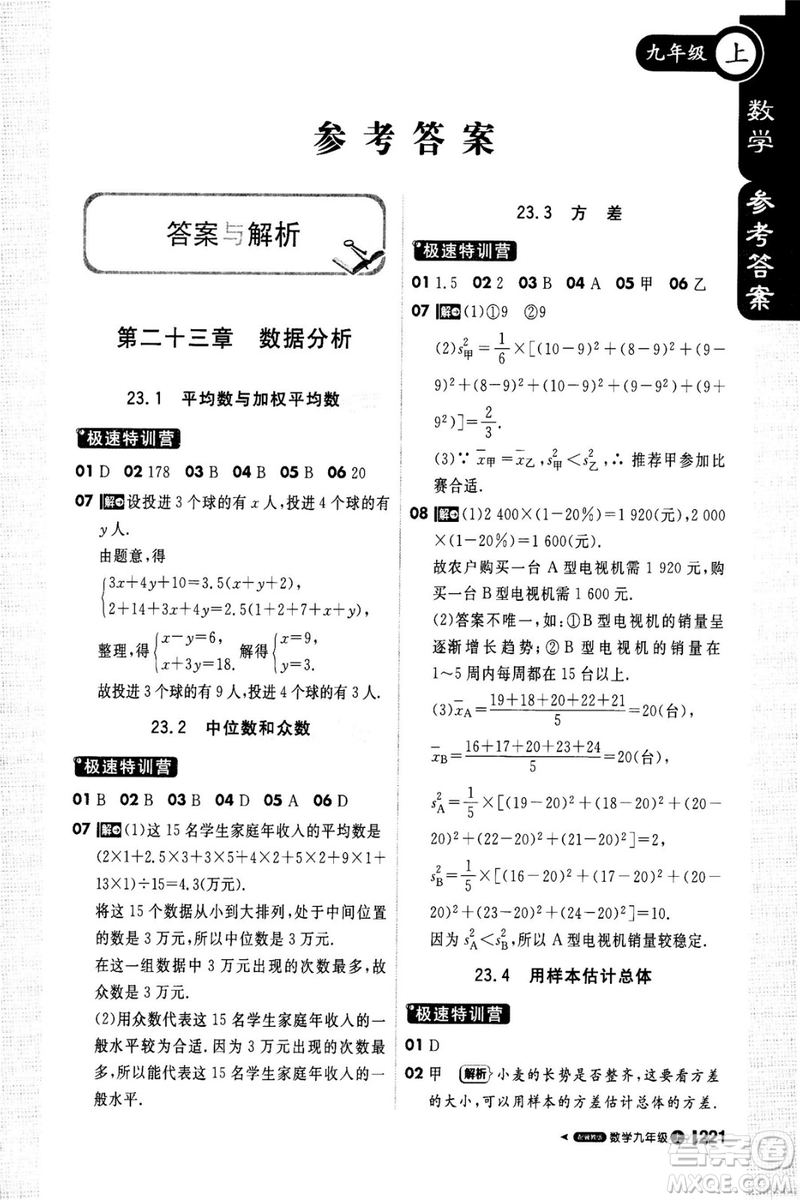 九年级 上
数学 参考答案
参考答案
答案与解析
第二十三章 数据分析
23.1 平均数与加权平均数
极速特训营
01 D 02 178 03 B 04 B 05 B 06 20
07 解 设投进 3 个球的有 x 人，投进 4 个球的有
y 人.
由题意，得
{3x+4y+10=3.5(x+y+2),
2+14+3x+4y=2.5(1+2+7+x+y).
整理，得{x-y=6, x+3y=18. 解得{x=9, y=3.
故投进 3 个球的有 9 人，投进 4 个球的有 3 人.
23.2 中位数和众数
极速特训营
01 B 02 B 03 C 04 D 05 A 06 D
07 解 (1)这 15 名学生家庭年收入的平均数是
(2×1+2.5×1+3×5+4×2+5×2+9×3+
13×1)÷15=4.3(万元).
将这 15 个数据从小到大排列，处于中间位置
的数是 3 万元，所以中位数是 3 万元.
在这一组数据中 3 万元出现的次数最多，故
众数是 3 万元.
(2)用众数代表这 15 名学生家庭年收入的一
般水平较为合适. 因为 3 万元出现的次数最多，
所以能代表这 15 名学生家庭年收入的一
般水平.
23.3 方 差
极速特训营
01 1.5 02 2 03 B 04 A 05 甲 06 乙
07 解 (1)①9 ②9
(2)s²甲=1/6×[(10-9)²+(8-9)²+(9-
9)²+(8-9)²+(10-9)²+(9-
9)²]=2/3.
(3)∵ x̄甲=x̄乙，s²甲<s²乙，∴ 推荐甲参加比
赛合适.
08 解 (1)2 400×(1-20%)=1 920(元)，2 000
×(1-20%)=1 600(元).
故农户购买一台 A 型电视机需 1 920 元，购
买一台 B 型电视机需 1 600 元.
(2)答案不唯一，如：①B 型电视机的销量呈
逐渐增长趋势；②B 型电视机的销量在
1~5 周内每周都在 15 台以上.
(3)x̄A=(19+18+20+22+21)/5=20(台)，
x̄B=(16+17+20+23+24)/5=20(台)，
s²A=1/5×[(19-20)²+(18-20)²+(20-
20)²+(22-20)²+(21-20)²]=2，
s²B=1/5×[(16-20)²+(17-20)²+(20-
20)²+(23-20)²+(24-20)²]=10.
因为 s²A<s²B，所以 A 型电视机销量较稳定.
23.4 用样本估计总体
极速特训营
01 D
02 甲 解析 小麦的长势是否整齐，这要看方差
的大小，可以用样本的方差估计总体的方差.
数学九年级 上 1221
答案圈
MXQE.COM